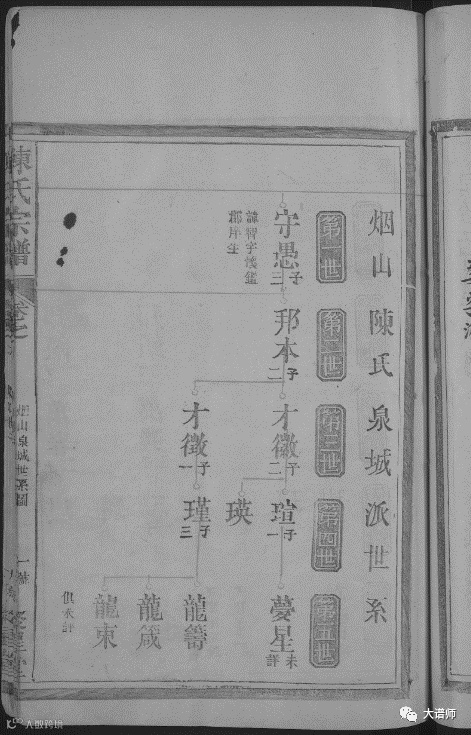 烟山陳氏泉城派世系
第一世
守愚
子三
邦庠生
第二世
邦本
子二
第三世
才徽
子二
才徵
子一
第四世
瑄
子一
瑛
瑾
子三
第五世
夢星
未詳
龍籌
龍箴
龍束
俱未詳
陳氏宗譜
卷之
烟山泉城世系圖
大谱师